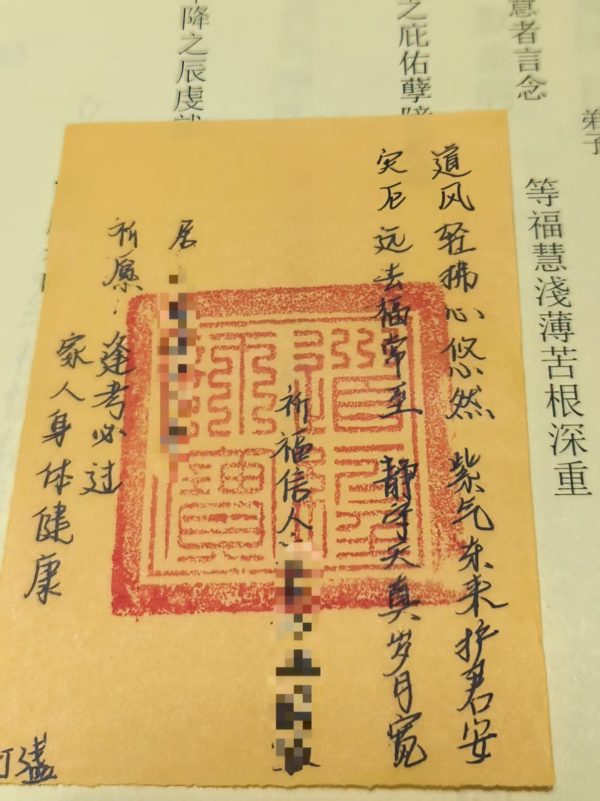 弟子
意者言念
等福慧淺薄苦根深重
之庇佑孽
降之辰虔
道风轻拂心悠然 紫气东来护君安
灾厄远去福常至 静守天真岁月宽
祈福信人
居
祈愿：逢考必过
家人身体健康
道經師寶